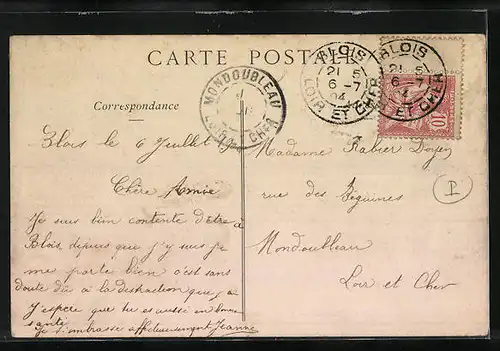 CARTE POSTALE
MONDOUBLEAU
LOIR - CHER
BLOIS
21 5
6 - 7
04
LOIR ET CHER
BLOIS
21 5
6 - 7
LOIR ET CHER
10
Correspondance
Blois le 6 Juillet
Chère Amie
Je suis bien contente d'être à
Blois, depuis que j'y suis je
me porte bien c'est sans
doute dû à la distraction que j'ai
J'espère que tu es aussi en bonne
santé
Je t'embrasse affectueusement Jeanne
Madame Rabier Doyer
rue des Béguines
Mondoubleau
Loir et Cher
P